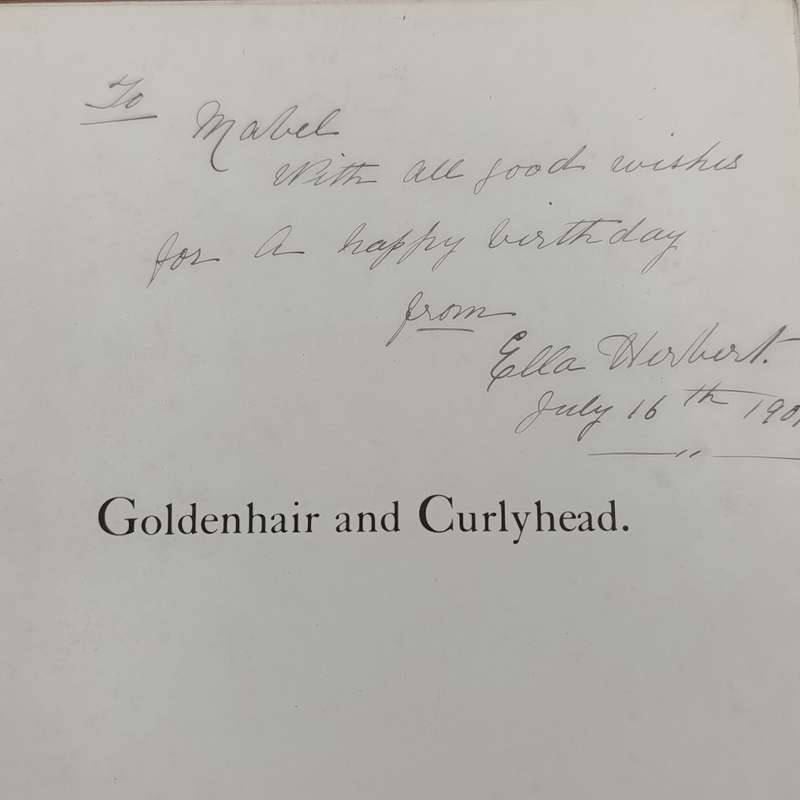 To
Mabel
With all good wishes
for a happy birthday
from
Ella Herbert.
July 16th
Goldenhair and Curlyhead.